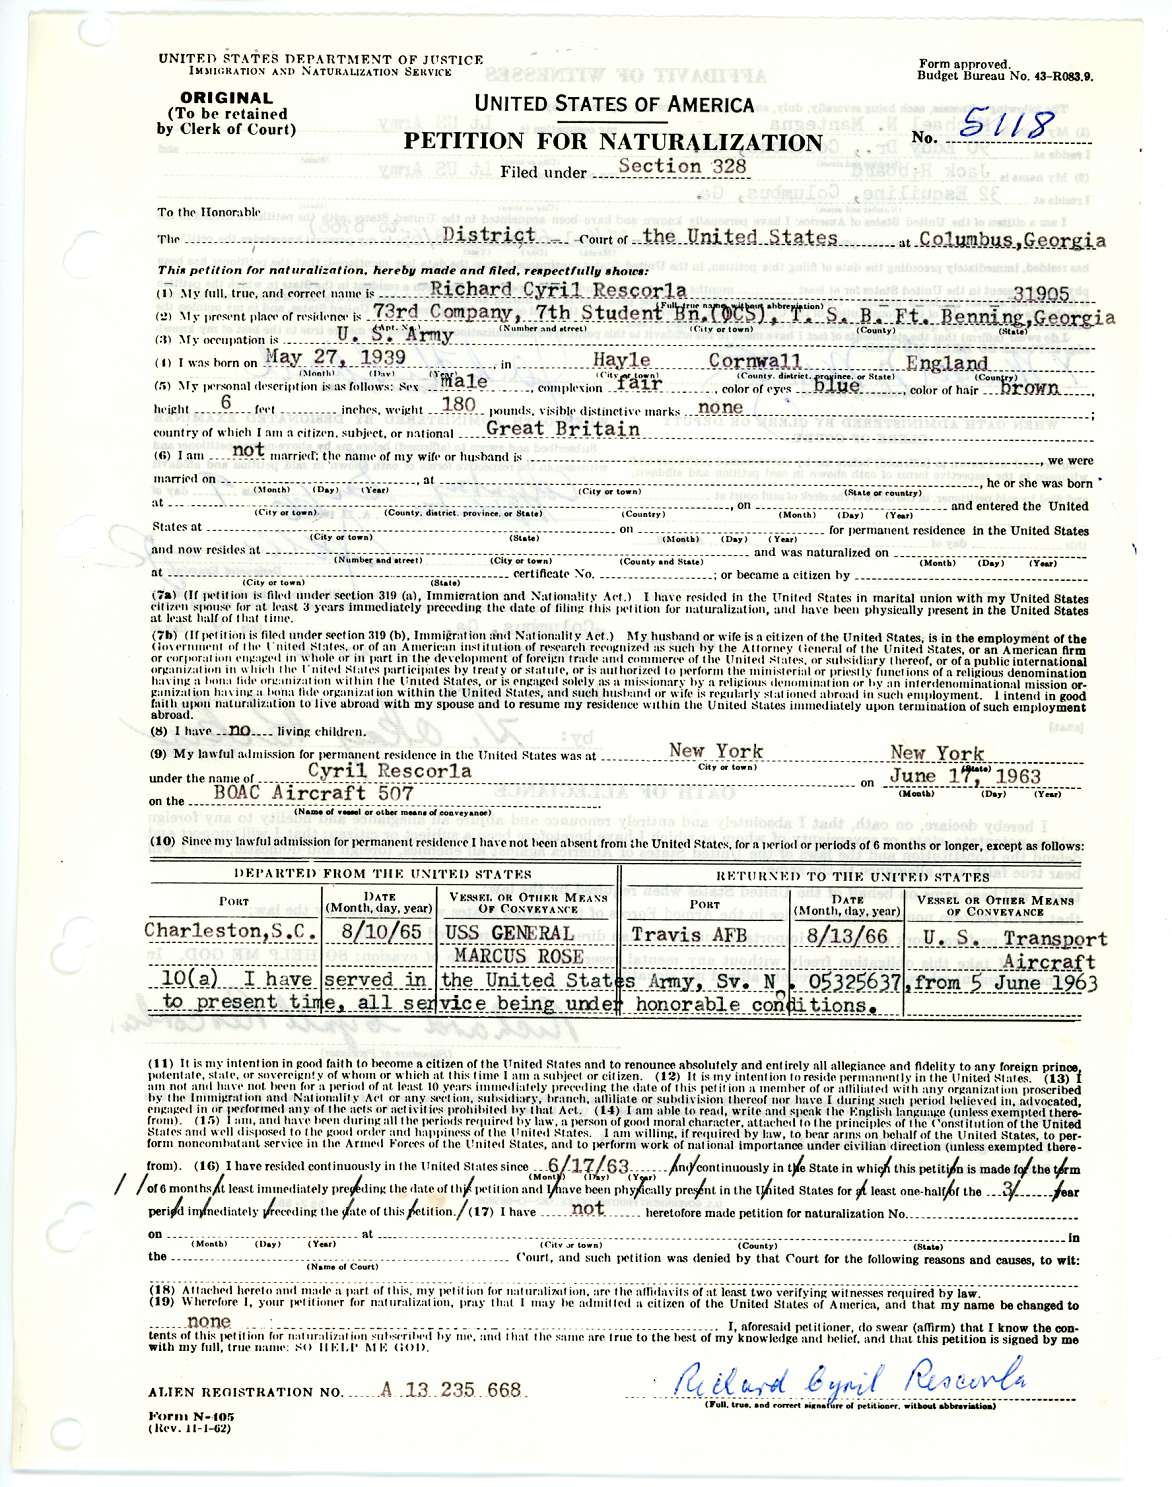 UNITED STATES DEPARTMENT OF JUSTICE
IMMIGRATION AND NATURALIZATION SERVICE
Form approved.
Budget Bureau No. 43-R083.9.
ORIGINAL
(To be retained
by Clerk of Court)
UNITED STATES OF AMERICA
PETITION FOR NATURALIZATION
No. 5118
Filed under Section 328
To the Honorable
The District Court of the United States at Columbus,Georgia
This petition for naturalization, hereby made and filed, respectfully shows:
(1) My full, true, and correct name is Richard Cyril Rescorla 31905
(Full, true name, without abbreviation)
(2) My present place of residence is 73rd Company, 7th Student Bn.(OCS), T. S. B. Ft. Benning,Georgia
(Apt. No.) (Number and street) (City or town) (County) (State)
(3) My occupation is U. S. Army
(4) I was born on May 27, 1939, in Hayle Cornwall England
(Month) (Day) (Year) (City or town) (County, district, province, or State) (Country)
(5) My personal description is as follows: Sex Male, complexion fair, color of eyes blue, color of hair brown,
height 6 feet inches, weight 180 pounds, visible distinctive marks none;
country of which I am a citizen, subject, or national Great Britain
(6) I am not married; the name of my wife or husband is , we were
married on , at , he or she was born
(Month) (Day) (Year) (City or town) (State or country)
at , on and entered the United
(City or town) (County, district, province, or State) (Country) (Month) (Day) (Year)
States at on for permanent residence in the United States
(City or town) (State) (Month) (Day) (Year)
and now resides at and was naturalized on
(Number and street) (City or town) (County and State) (Month) (Day) (Year)
at certificate No. ; or became a citizen by
(City or town) (State)
(7a) (If petition is filed under section 319 (a), Immigration and Nationality Act.) I have resided in the United States in marital union with my United States
citizen spouse for at least 3 years immediately preceding the date of filing this petition for naturalization, and have been physically present in the United States
at least half of that time.
(7b) (If petition is filed under section 319 (b), Immigration and Nationality Act.) My husband or wife is a citizen of the United States, is in the employment of the
Government of the United States, or of an American institution of research recognized as such by the Attorney General of the United States, or an American firm
or corporation engaged in whole or in part in the development of foreign trade and commerce of the United States, or subsidiary thereof, or of a public international
organization in which the United States participates by treaty or statute, or is authorized to perform the ministerial or priestly functions of a religious denomination
having a bona fide organization within the United States, or is engaged solely as a missionary by a religious denomination or by an interdenominational mission or-
ganization having a bona fide organization within the United States, and such husband or wife is regularly stationed abroad in such employment. I intend in good
faith upon naturalization to live abroad with my spouse and to resume my residence within the United States immediately upon termination of such employment
abroad.
(8) I have no living children.
(9) My lawful admission for permanent residence in the United States was at New York New York
(City or town) (State)
under the name of Cyril Rescorla on June 17, 1963
(Month) (Day) (Year)
on the BOAC Aircraft 507
(Name of vessel or other means of conveyance)
(10) Since my lawful admission for permanent residence I have not been absent from the United States, for a period or periods of 6 months or longer, except as follows:
DEPARTED FROM THE UNITED STATES RETURNED TO THE UNITED STATES
PORT DATE (Month, day, year) VESSEL OR OTHER MEANS OF CONVEYANCE PORT DATE (Month, day, year) VESSEL OR OTHER MEANS OF CONVEYANCE
Charleston,S.C. 8/10/65 USS GENERAL Travis AFB 8/13/66 U. S. Transport
MARCUS ROSE Aircraft
10(a) I have served in the United States Army, Sv. No. 05325637,from 5 June 1963
to present time, all service being under honorable conditions.
(11) It is my intention in good faith to become a citizen of the United States and to renounce absolutely and entirely all allegiance and fidelity to any foreign prince,
potentate, state, or sovereignty of whom or which at this time I am a subject or citizen. (12) It is my intention to reside permanently in the United States. (13) I
am not and have not been for a period of at least 10 years immediately preceding the date of this petition a member of or affiliated with any organization proscribed
by the Immigration and Nationality Act or any section, subsidiary, branch, affiliate or subdivision thereof nor have I during such period believed in, advocated,
engaged in or performed any of the acts or activities prohibited by that Act. (14) I am able to read, write and speak the English language (unless exempted there-
from). (15) I am, and have been during all the periods required by law, a person of good moral character, attached to the principles of the Constitution of the United
States and well disposed to the good order and happiness of the United States. I am willing, if required by law, to bear arms on behalf of the United States, to per-
form noncombatant service in the Armed Forces of the United States, and to perform work of national importance under civilian direction (unless exempted there-
from). (16) I have resided continuously in the United States since 6/17/63 and continuously in the State in which this petition is made for the term
(Month) (Day) (Year)
of 6 months at least immediately preceding the date of this petition and I have been physically present in the United States for at least one-half of the 3 year
period immediately preceding the date of this petition. (17) I have not heretofore made petition for naturalization No.
on at in
(Month) (Day) (Year) (City or town) (County) (State)
the Court, and such petition was denied by that Court for the following reasons and causes, to wit:
(Name of Court)
(18) Attached hereto and made a part of this, my petition for naturalization, are the affidavits of at least two verifying witnesses required by law.
(19) Wherefore I, your petitioner for naturalization, pray that I may be admitted a citizen of the United States of America, and that my name be changed to
none I, aforesaid petitioner, do swear (affirm) that I know the con-
tents of this petition for naturalization subscribed by me, and that the same are true to the best of my knowledge and belief, and that this petition is signed by me
with my full, true name: SO HELP ME GOD.
ALIEN REGISTRATION NO. A 13 235 668
Richard Cyril Rescorla
(Full, true, and correct signature of petitioner, without abbreviation)
Form N-405
(Rev. 11-1-62)